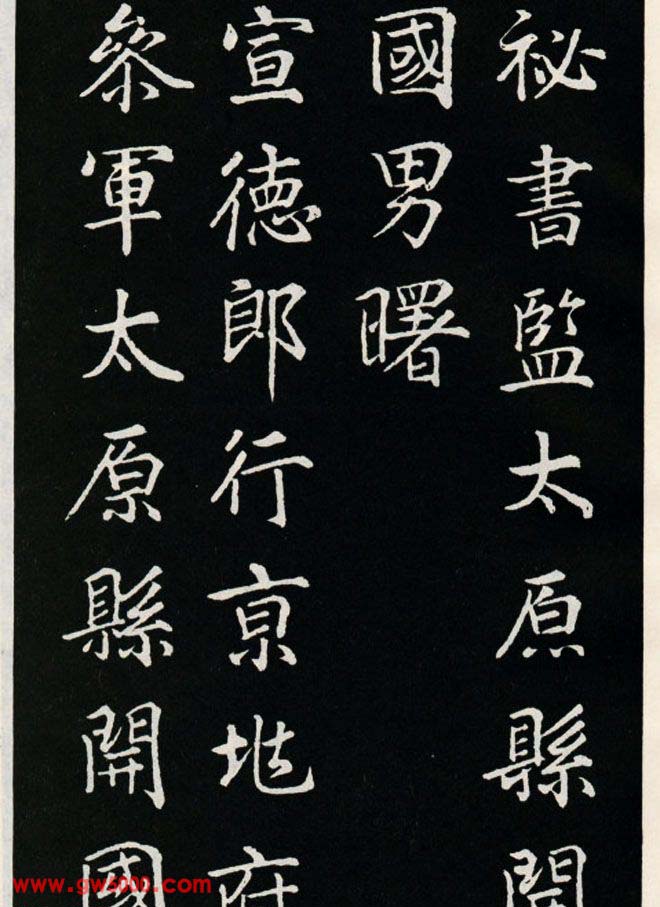 祕書監太原縣開
國男曙
宣徳郎行亰兆府
叅軍太原縣開國
www.gw5000.com